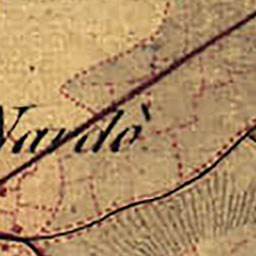 Nardò